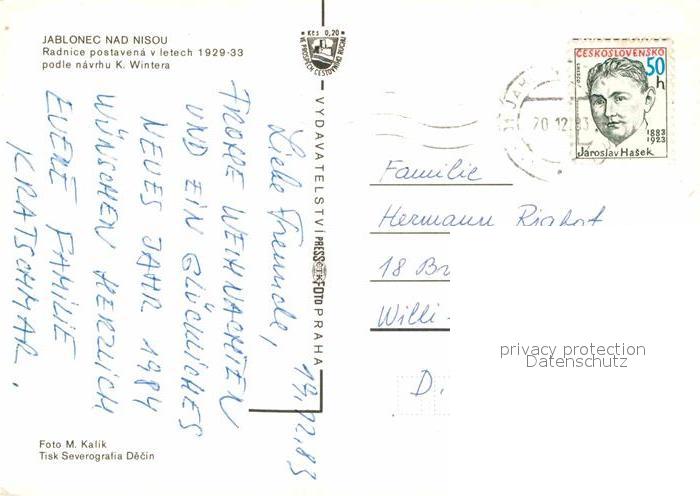 JABLONEC NAD NISOU
Radnice postavená v letech 1929-33
podle návrhu K. Wintera
Kčs 0,20
VE PROSPĚCH CESTOVNÍHO RUCHU
19.12.83
Liebe Freunde,
FROHE WEIHNACHTEN
UND EIN GLÜCKLICHES
NEUES JAHR 1984
WÜNSCHEN HERZLICH
EUERE FAMILIE
KRATSCHMAR.
Foto M. Kalík
Tisk Severografia Děčín
VYDAVATELSTVÍ PRESSFOTO PRAHA
ČESKOSLOVENSKO
50 h
1883
1923
Jaroslav Hašek
20.12.83
Familie
Hermann
18 Br
Willi.
D.
privacy protection
Datenschutz